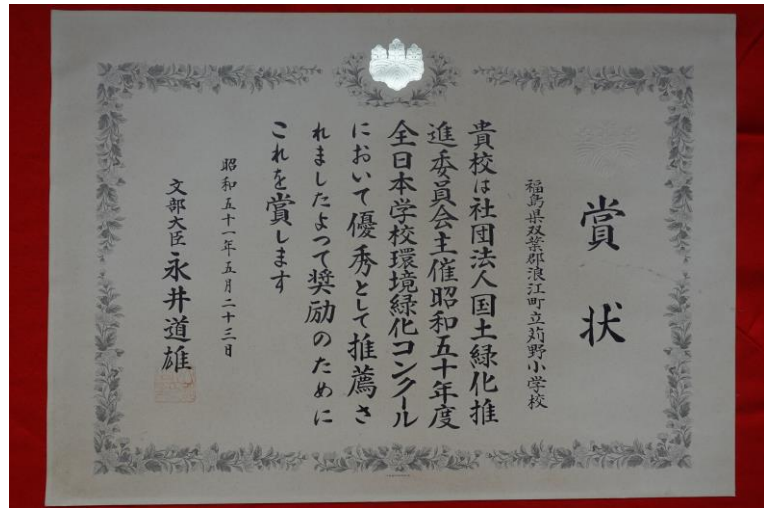 賞状
福島県双葉郡浪江町立苅野小学校
貴校は社団法人国土緑化推
進委員会主催昭和五十年度
全日本学校環境緑化コンクール
において優秀として推薦さ
れましたよつて奨励のために
これを賞します
昭和五十一年五月二十三日
文部大臣 永井道雄